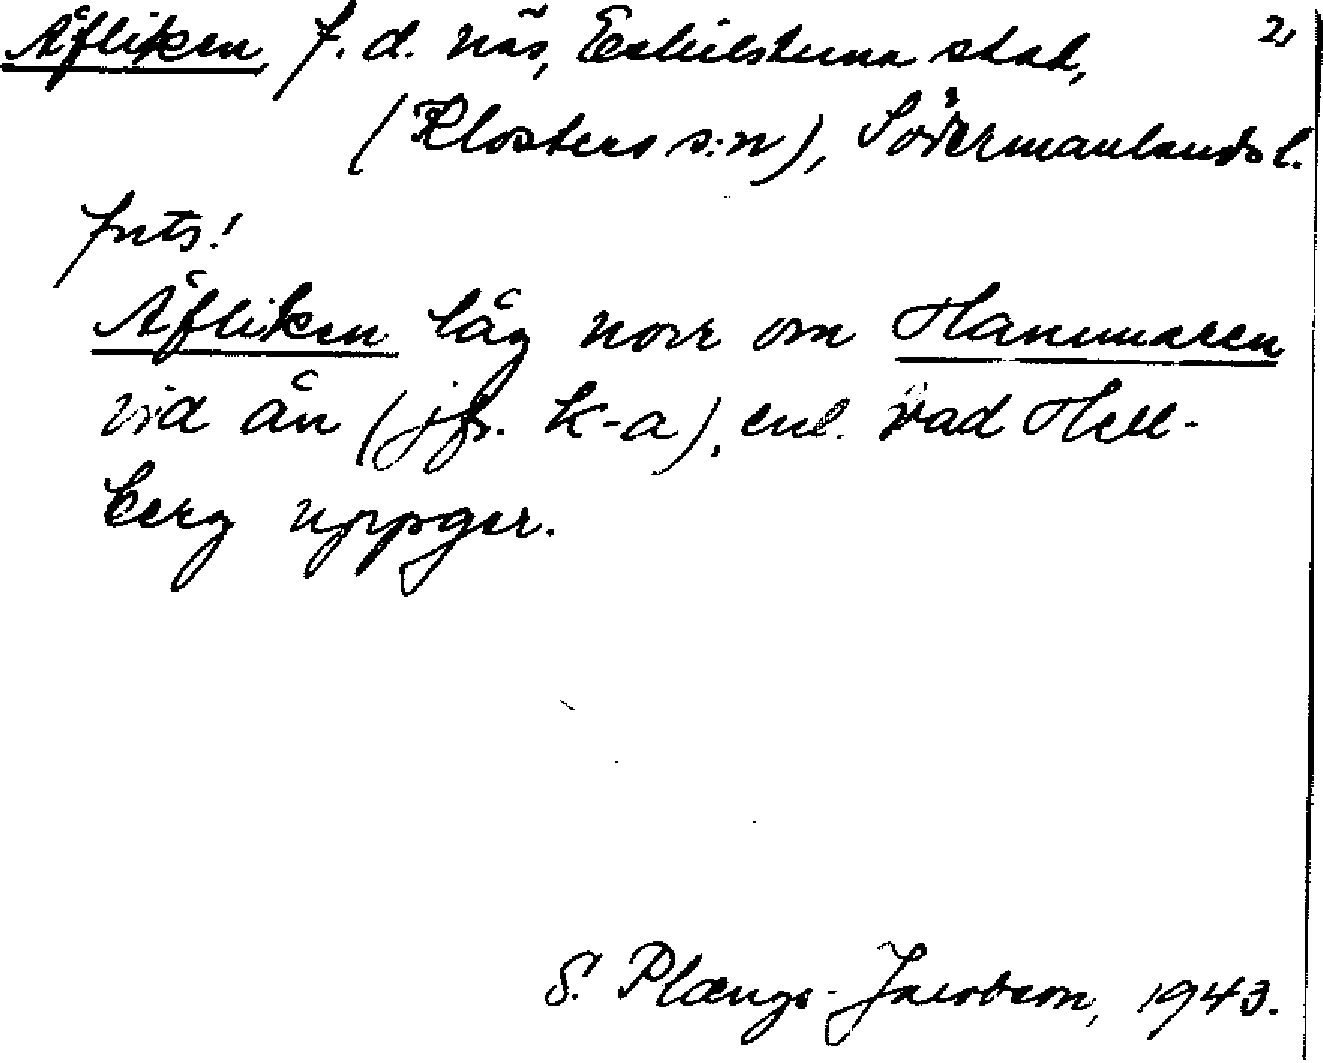 Åfliken, f.d. näs, Eskilstuna stad, 2,
(Klosters s:n), Södermanlands l.
forts!
Åfliken låg norr om Hammaren
vid ån (jfr. k-a), enl. vad Hell-
berg uppger.
S. Plænge-Jacobson, 1943.